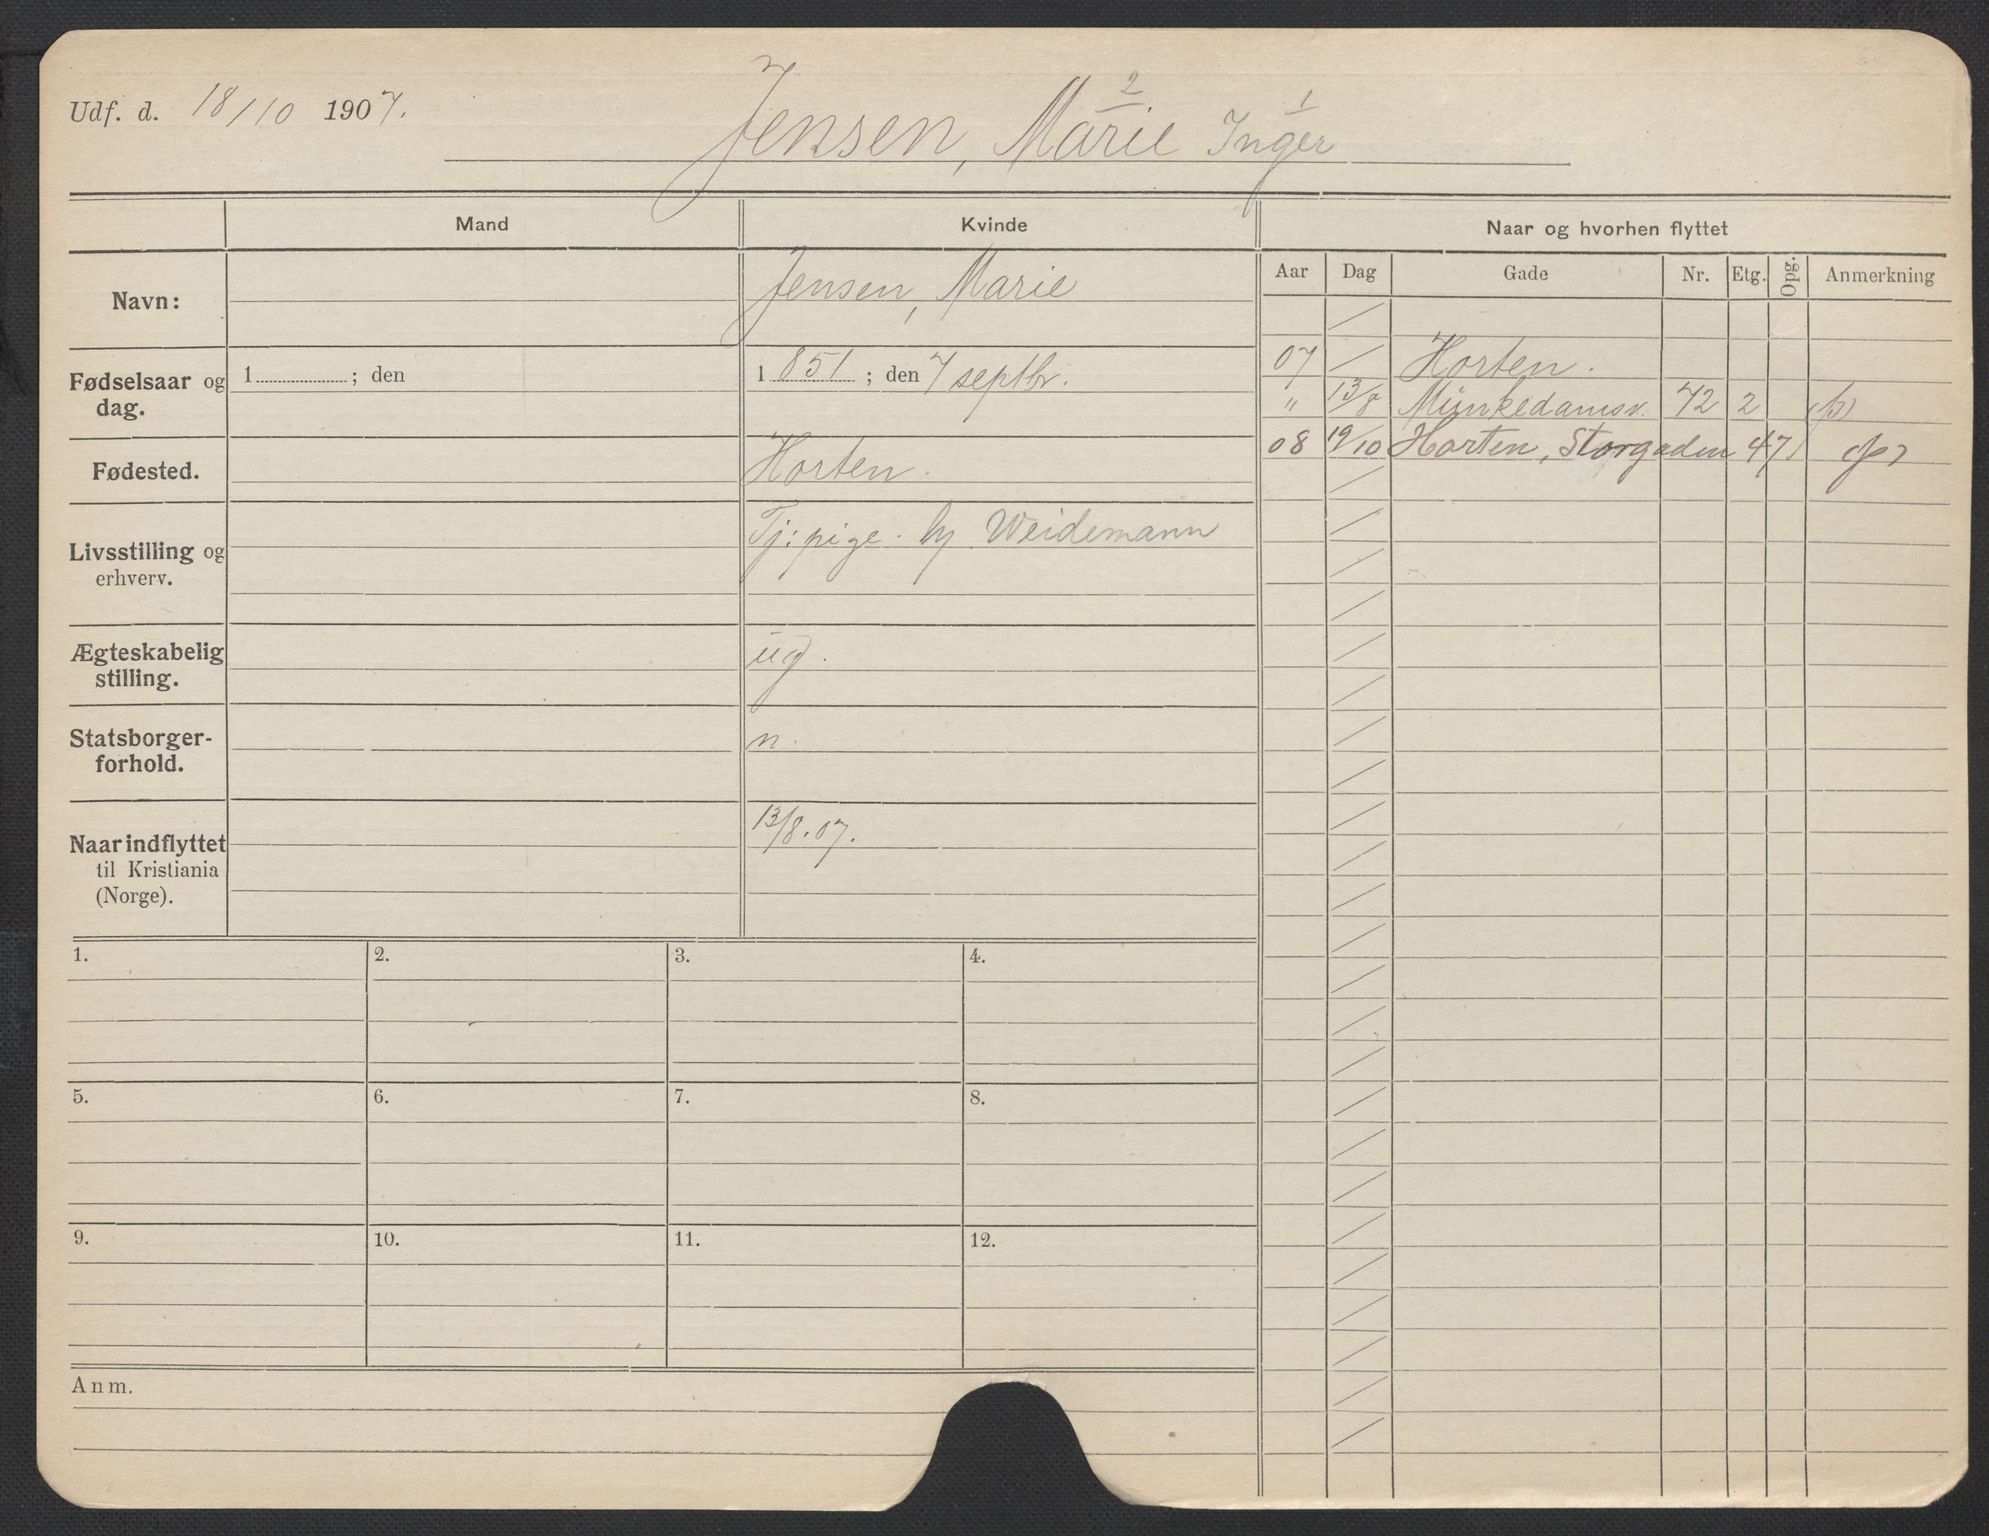 Udf. d. 18/10 1907.
2 1
Jensen, Marie Inger
Mand Kvinde Naar og hvorhen flyttet
Aar Dag Gade Nr. Etg. Opg. Anmerkning
Navn: Jensen, Marie
07 Horten.
Fødselsaar og dag. 1 ; den 1851 ; den 7 septbr.
" 13/8 Munkedamsv. 72 2 (p)
08 19/10 Horten, Storgaden 47 (p)
Fødested. Horten.
Livsstilling og erhverv. Tj: pige. hj Weidemann
Ægteskabelig stilling. ug.
Statsborger-
forhold. n.
Naar indflyttet til Kristiania (Norge). 13/8.07.
1. 2. 3. 4.
5. 6. 7. 8.
9. 10. 11. 12.
Anm.